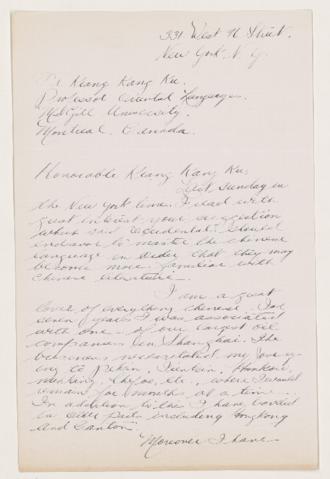 331 West 11 Street.
New York, N. Y.
Dr Kiang Kang Hu.
Professor Oriental Languages.
McGill University.
Montreal. Canada.
Honorable Kiang Kang Hu:
Last Sunday in
the New York Times I read with
great interest your suggestion
which said "occidentals" should
endeavor to master the chinese
language in order that they may
become more familiar with
Chinese literature.
I am a great
lover of everything chinese. For
seven years I was associated
with one of our largest oil
companies in Shanghai. The
business necessitated my journey-
ing to Pekin, Tientsin, Hankow,
Nanking, Chefoo, etc., where I would
remain for months at a time.
In addition to this I have traveled
in other parts including Hongkong
and Canton.
Moreover I have